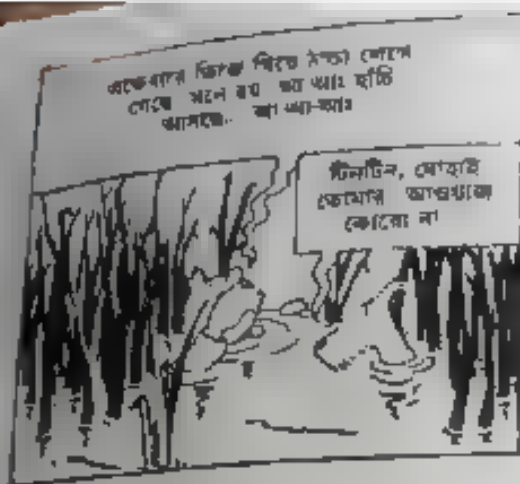 একেবারে ভিজে গিয়ে ঠাণ্ডা লেগে
গেছে মনে হয় আ আঃ হাঁচি
আসছে.. আ-আ-আঃ
টিনটিন, দোহাই
তোমার আওয়াজ
কোরো না